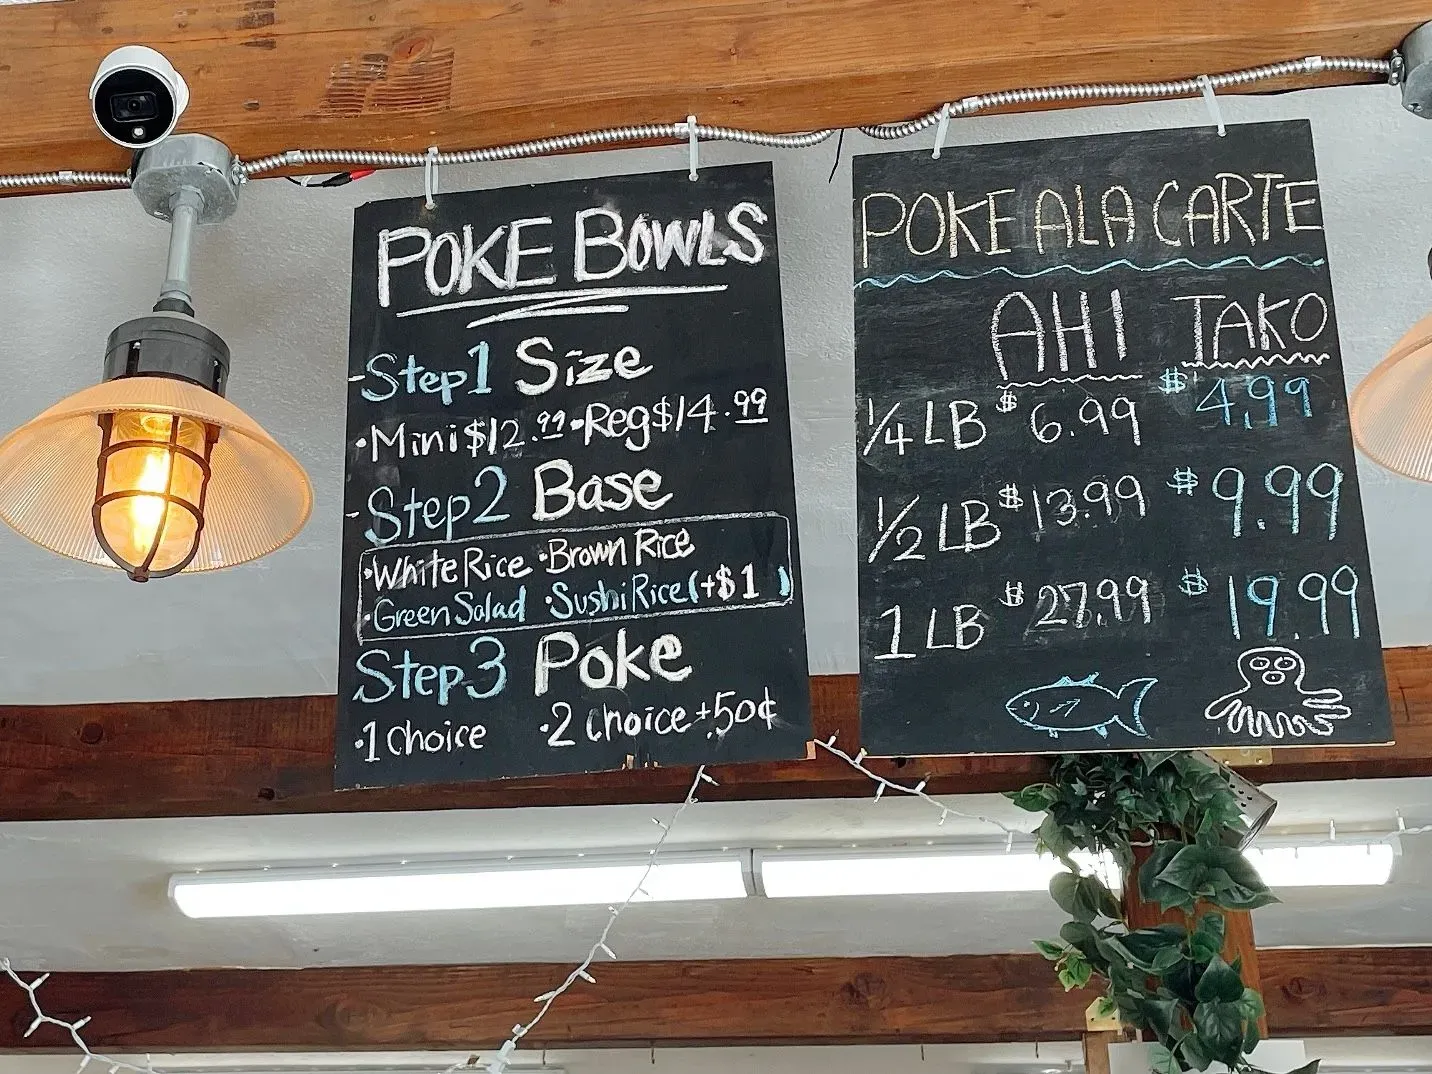 POKE BOWLS
-Step1 Size
•Mini $12.99 •Reg $14.99
-Step2 Base
•White Rice •Brown Rice
•Green Salad •Sushi Rice (+$1)
Step3 Poke
•1 choice •2 choice +.50¢
POKE ALA CARTE
AHI TAKO
1/4 LB $6.99 $4.99
1/2 LB $13.99 $9.99
1 LB $27.99 $19.99